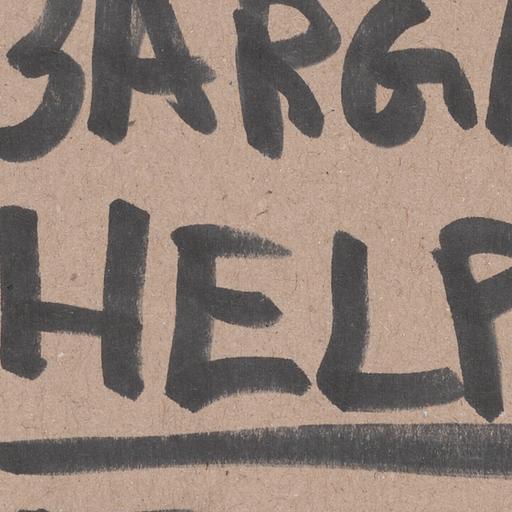 BARG
HELP